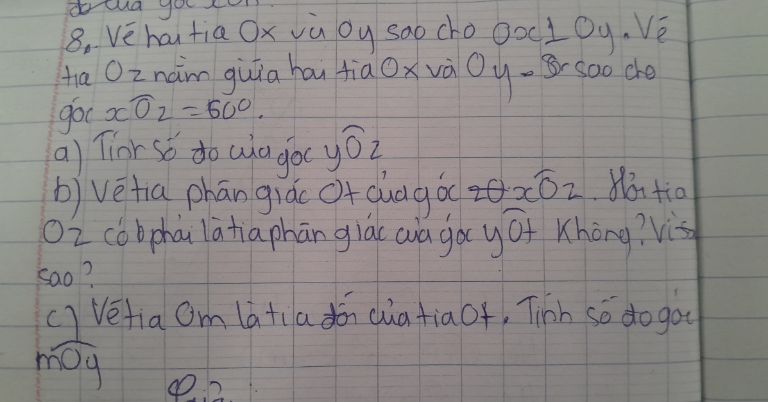 đo của góc xOn.
8. Vẽ hai tia Ox và Oy sao cho Ox ⊥ Oy. Vẽ
tia Oz nằm giữa hai tia Ox và Oy sao cho
góc xOz = 60°.
a) Tính số đo của góc yOz
b) Vẽ tia phân giác Ot của góc xOz. Hỏi tia
Oz có phải là tia phân giác của góc yOt không? Vì
sao?
c) Vẽ tia Om là tia đối của tia Ot. Tính số đo góc
mOy